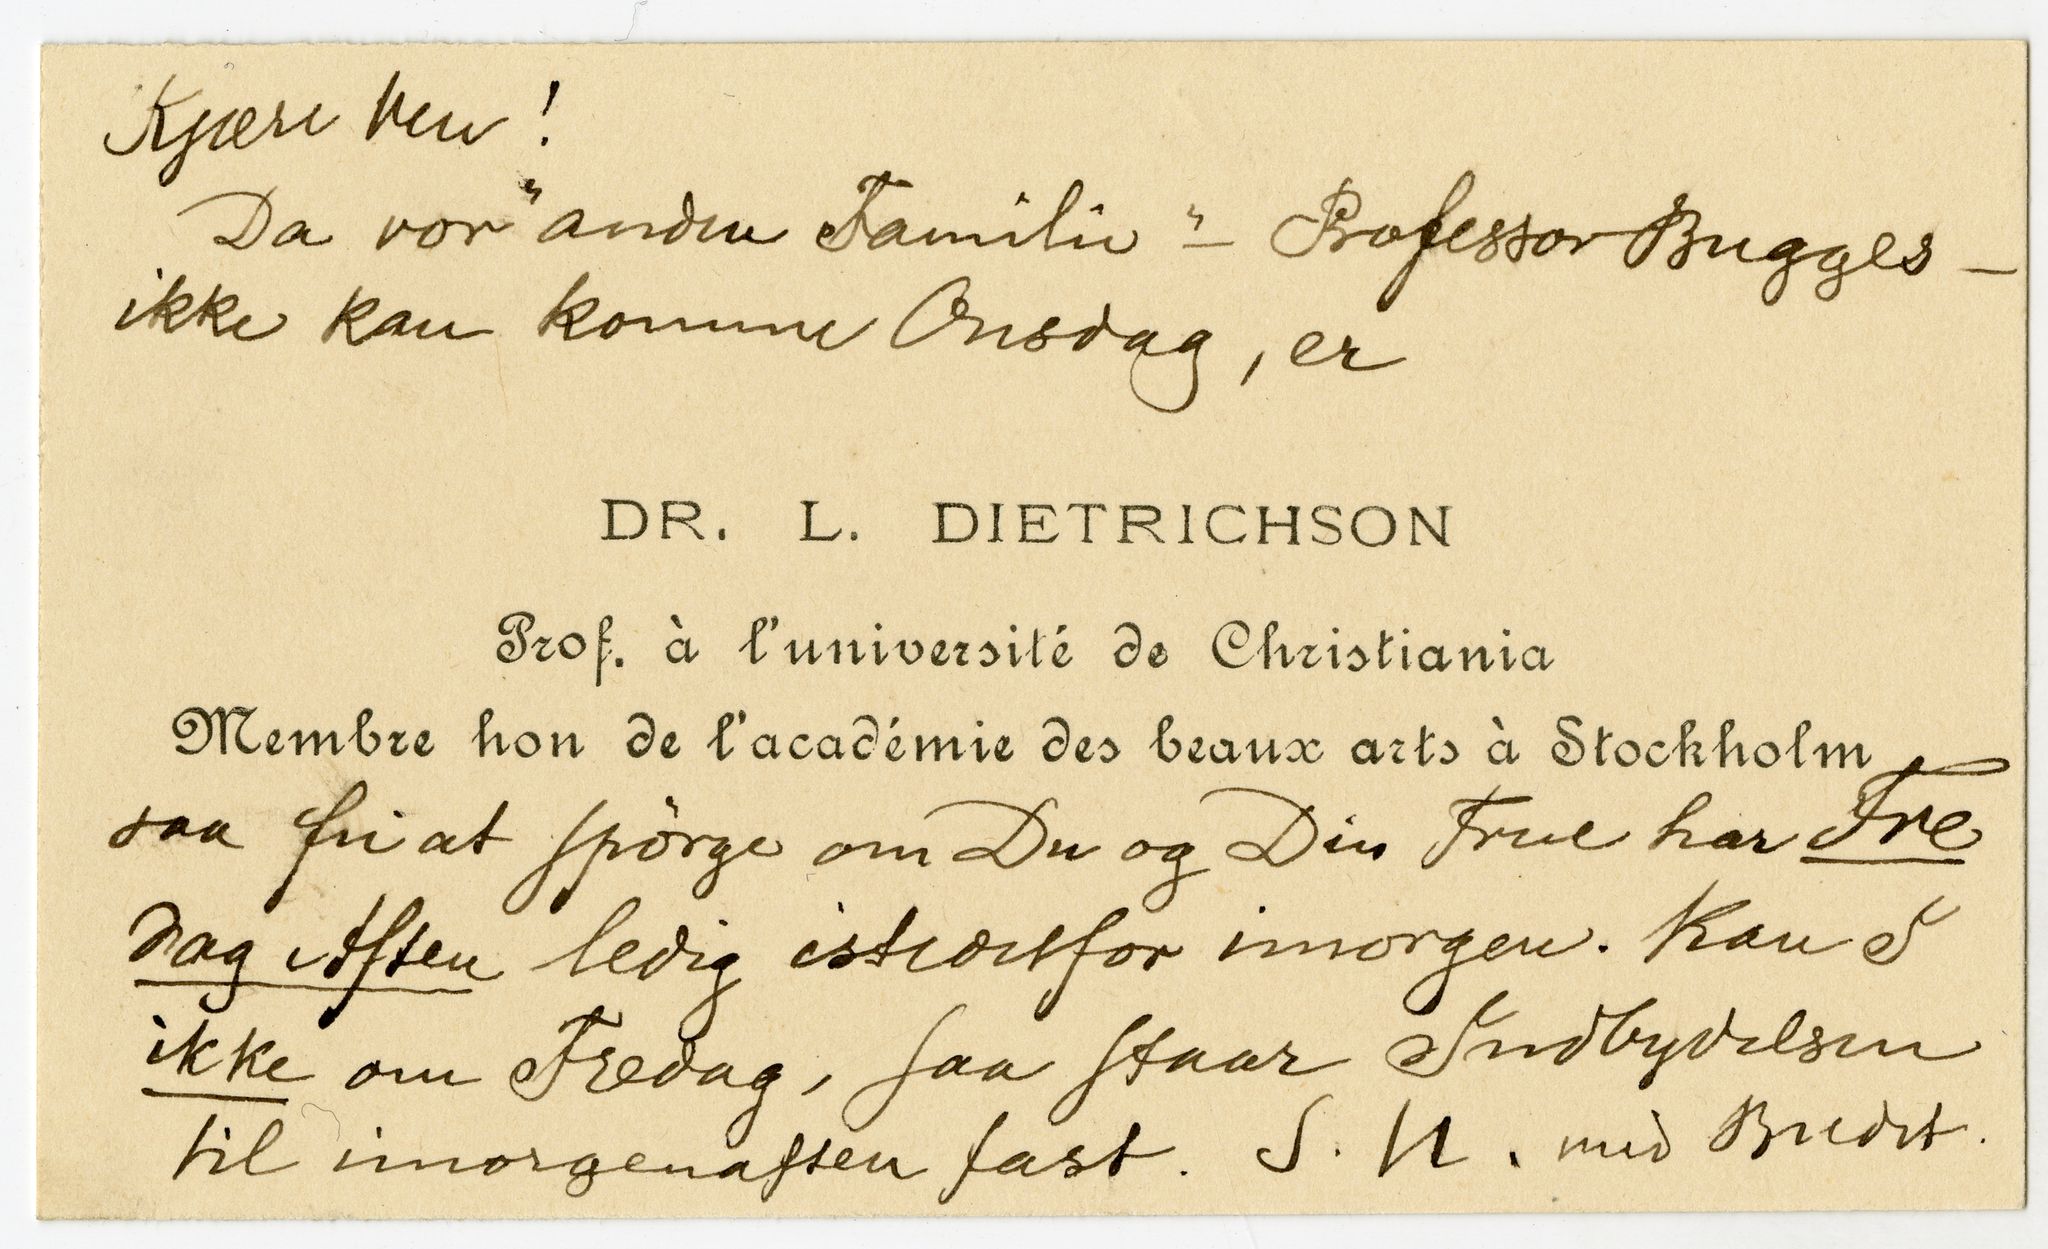 Kjære Ven!
Da vor "anden Familie" – Professor Bugges –
ikke kan komme Onsdag, er
DR. L. DIETRICHSON
Prof. à l'université de Christiania
Membre hon de l'académie des beaux arts à Stockholm
saa fri at spörge om Du og Din Frue har Fre
dag Aften ledig istedetfor imorgen. Kan I
ikke om Fredag, saa staar Indbydelsen
til imorgenaften fast. S. U. med Budet.